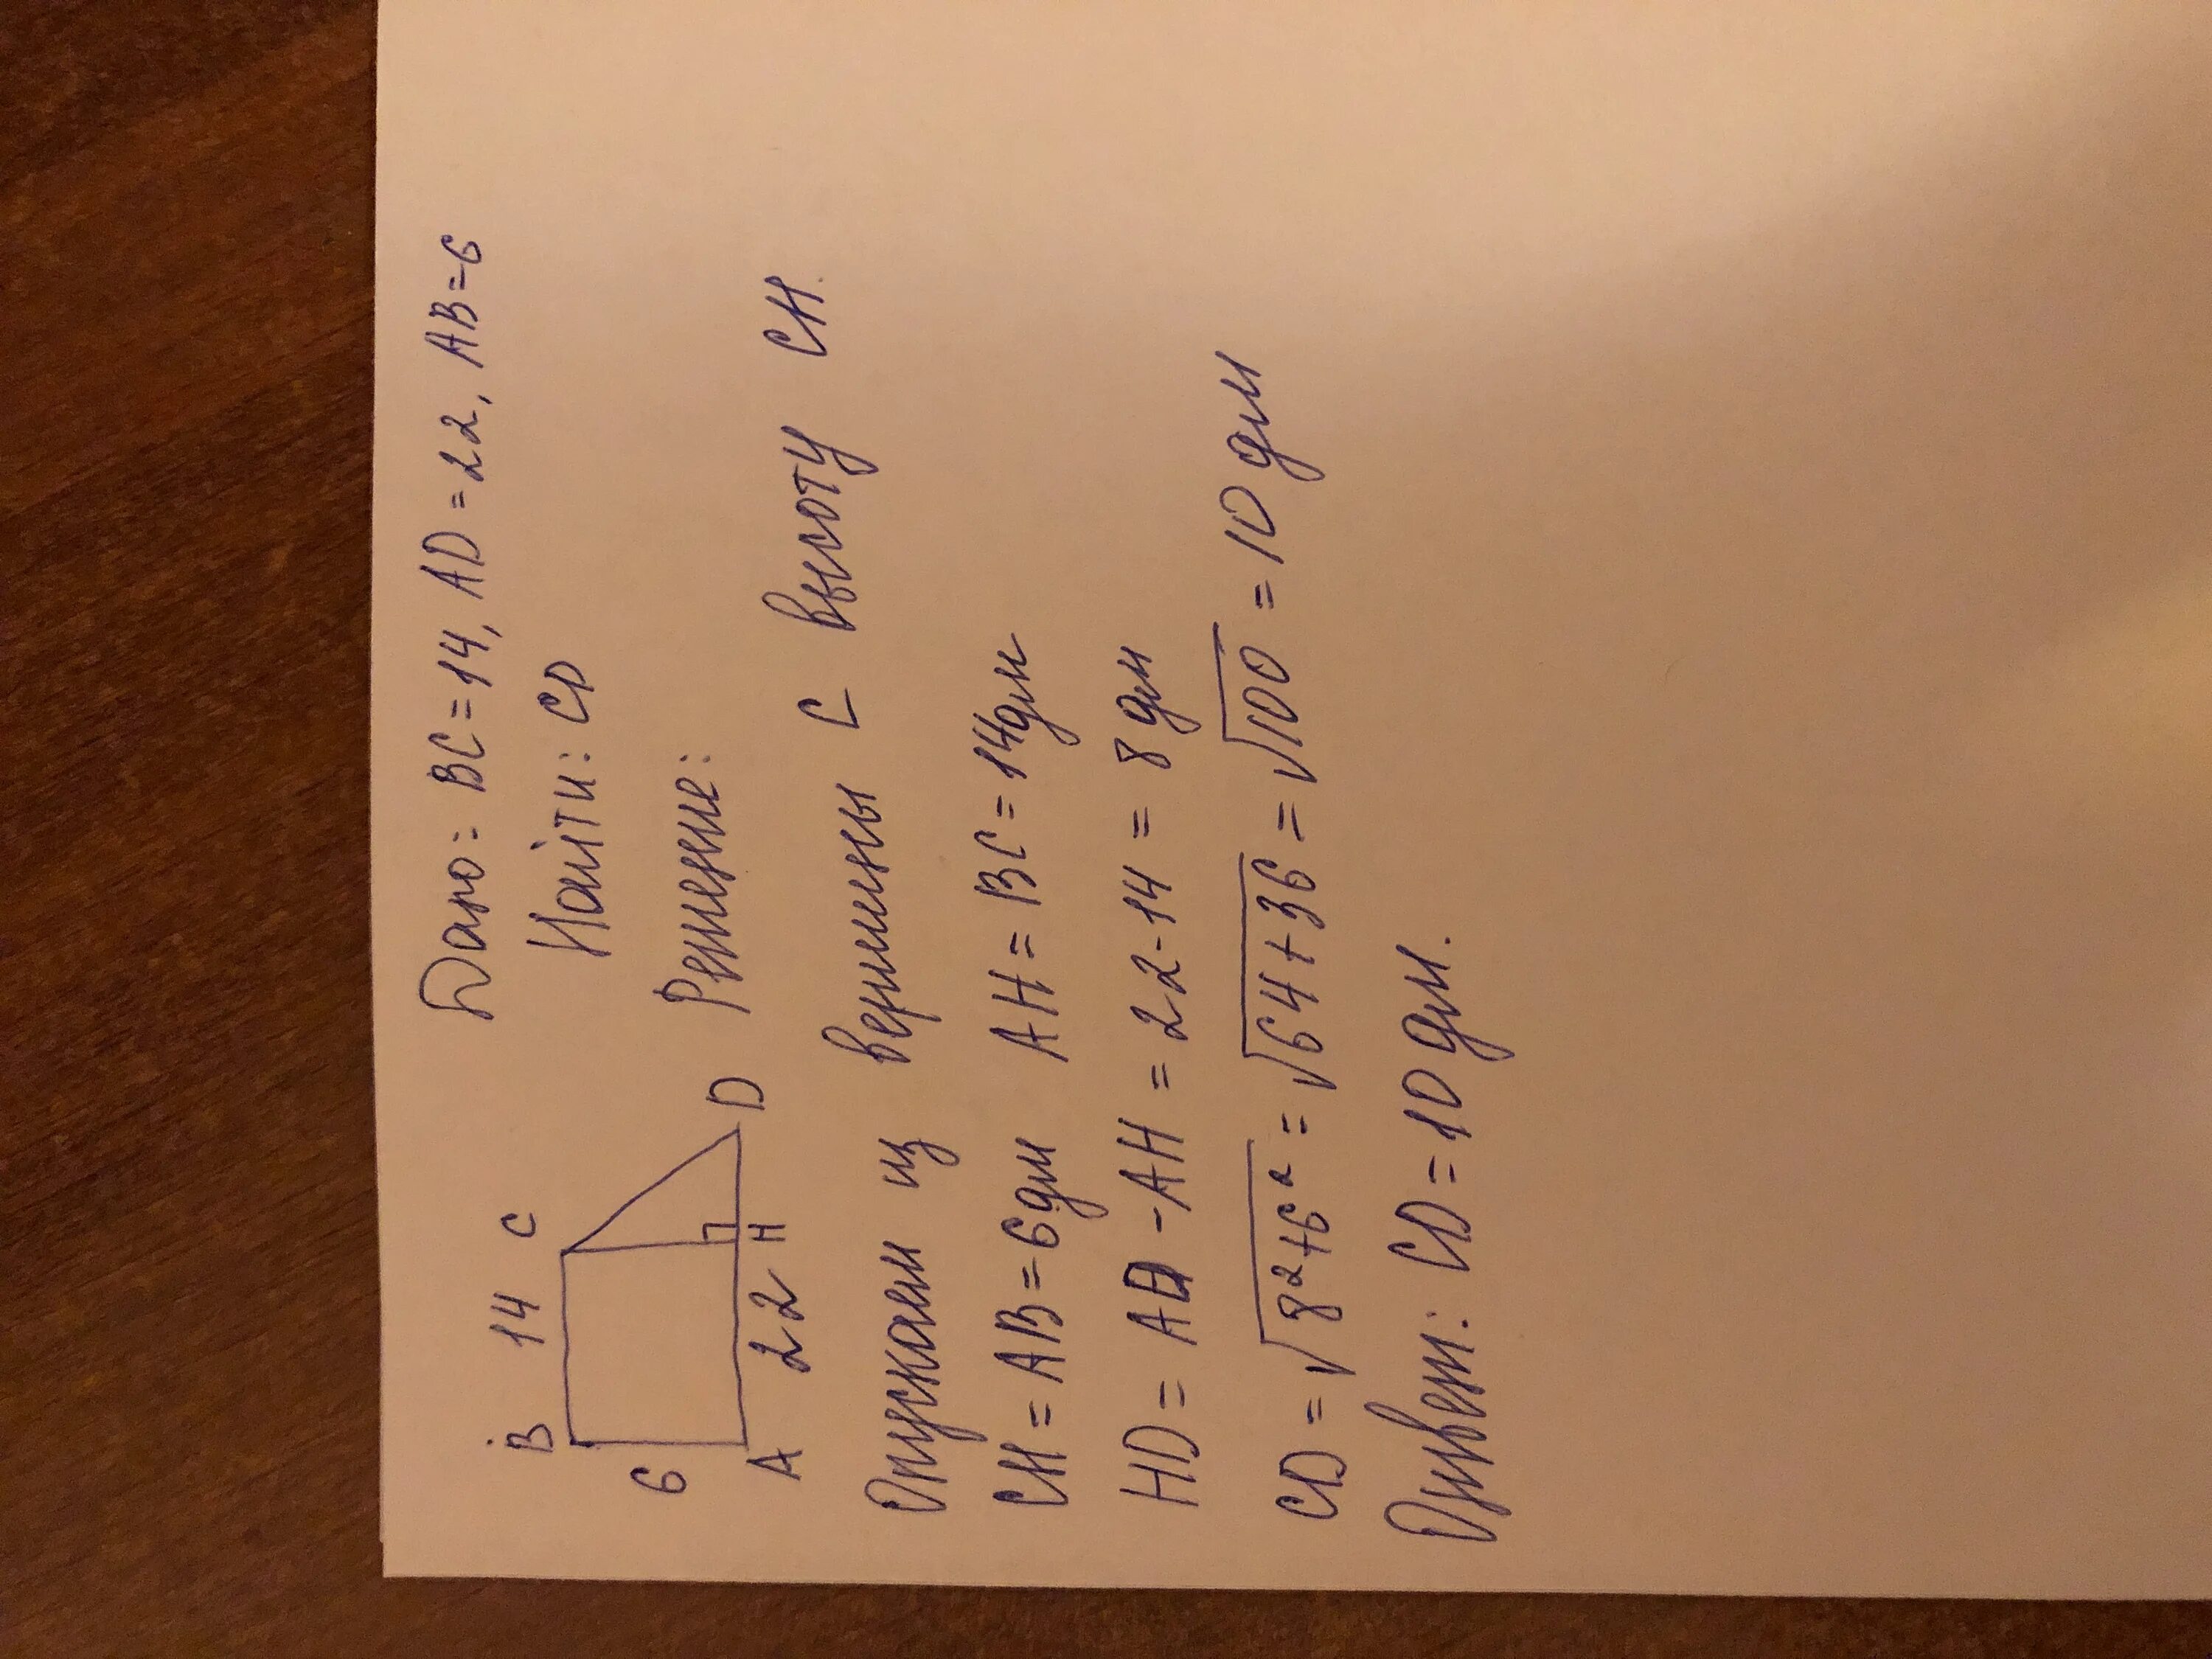 B 14 C
6
A 22 H D
Дано: BC = 14, AD = 22, AB = 6
Найти: CD
Решение:
Опускаем из вершины C высоту CH.
CH = AB = 6 дм AH = BC = 14 дм
HD = AD - AH = 22 - 14 = 8 дм
CD = √8²+6² = √64+36 = √100 = 10 дм
Ответ: CD = 10 дм.